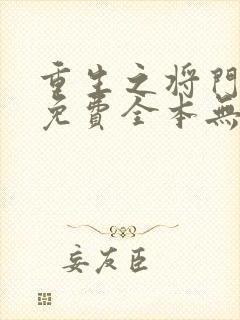 重生之将門
免費全本無
妄友臣